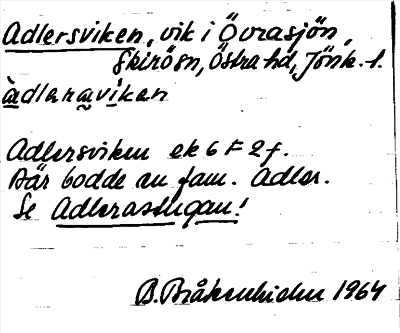 Adlersviken, vik i Övrasjön,
Skirösn, Östra hd, Jönk. l.
àdlaraviken
Adlersviken ek 6 F 2 f.
Där bodde en fam. Adler.
Se Adlerastugan!
B. Bråkenhielm 1964